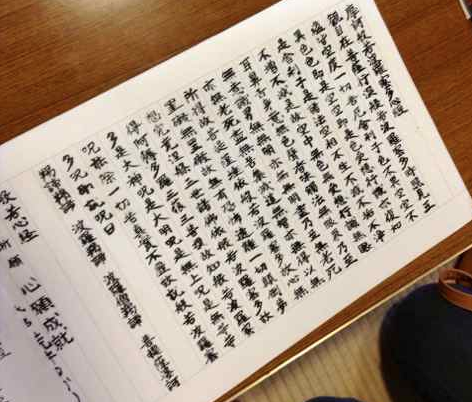 摩訶般若波羅蜜多心経
観自在菩薩行深般若波羅蜜多時照見五
蘊皆空度一切苦厄舎利子色不異空空不
異色色即是空空即是色受想行識亦復如
是舎利子是諸法空相不生不滅不垢不浄
不増不減是故空中無色無受想行識無眼
耳鼻舌身意無色声香味触法無眼界乃至
無意識界無無明亦無無明尽乃至無老死
亦無老死尽無苦集滅道無智亦無得以無
所得故菩提薩埵依般若波羅蜜多故心無
罣礙無罣礙故無有恐怖遠離一切顛倒夢
想究竟涅槃三世諸仏依般若波羅蜜多故
得阿耨多羅三藐三菩提故知般若波羅蜜
多是大神呪是大明呪是無上呪是無等等
呪能除一切苦真実不虚故説般若波羅蜜
多呪即説呪曰
羯諦羯諦 波羅羯諦 波羅僧羯諦 菩提薩婆訶
般若心経
所願 心願成就